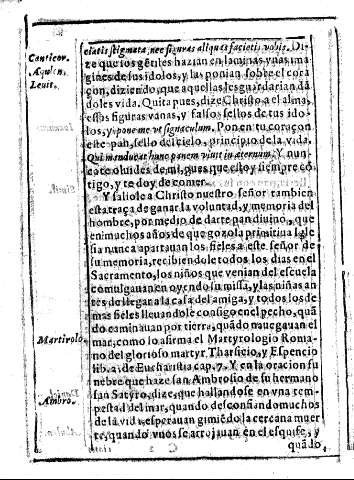 ciatis stigmata, nec figuras aliquas facietis vobis. Di-
ze que los gẽtiles hazian en laminas vnas ima
gines de sus idolos, y las ponian sobre el cora
çon, diziendo, que aquellas les guardarian dã
doles vida. Quita pues, dize Christo al alma,
essas figuras vanas, y falsos sellos de tus ido-
los, y pone me vt signaculum. Pon en tu coraçon
este pan, sello del cielo, principio de la vida.
Qui manducat hunc panem viuit in æternum. Y nun
ca te oluides de mi, pues que estoy siempre cõ
tigo, y te doy de comer.
Y saliole a Christo nuestro señor tambien
esta traça de ganar la voluntad, y memoria del
hombre, por medio de darte pan diuino, que
en muchos años de que gozo la primitiua Igle
sia nunca apartauan los fieles a este señor de
su memoria, recibiendole todos los dias en el
Sacramento, los niños que venian del escuela
comulgauan en oyendo su missa, y las niñas an
tes de llegar a la casa del amiga, y todos los de
mas fieles lleuandole consigo en el pecho, quã
do caminauan por tierra, quãdo nauegauan el
mar, como lo afirma el Martyrologio Roma-
no del glorioso martyr Tharsicio, y Espencio
lib. 2. de Eucharistia cap. 7. Y en la oracion fu
nebre que haze san Ambrosio de su hermano
san Satyro, dize, que hallandose en vna tem-
pestad del mar, quando desconfiando muchos
de la vida, esperauan gimiẽdo la cercana muer
te, quando vnos se arrojauan en el esquife, y
quãdo
Canticor.
Aquilen.
Leuit.
Martirolo.
Ambro.